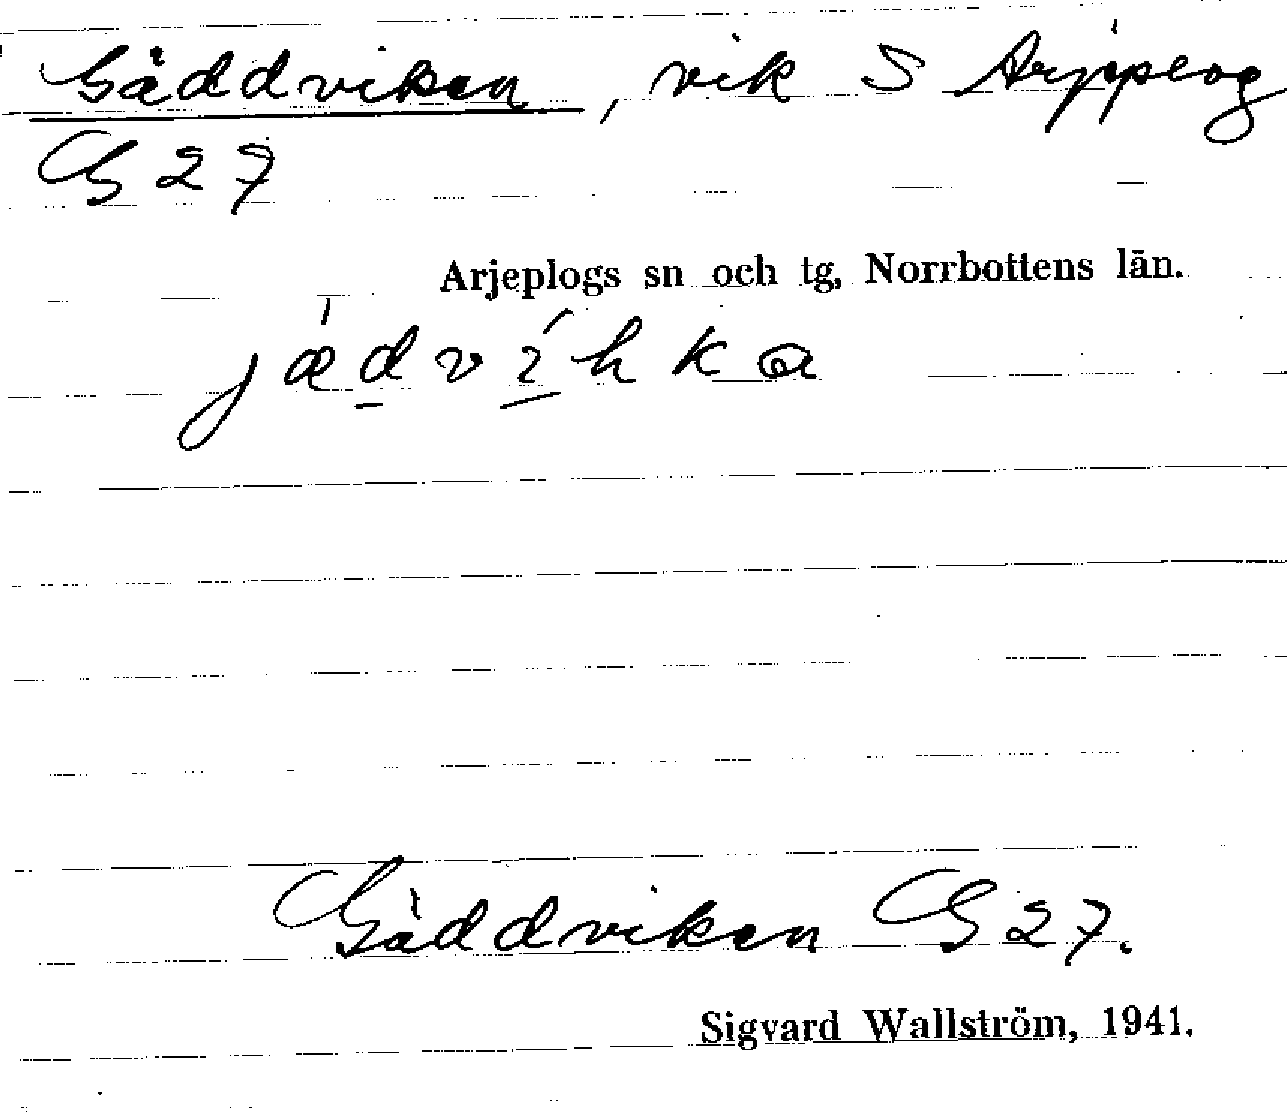 Gäddviken, vik S Arjeplog
G 27
Arjeplogs sn och tg, Norrbottens län.
jǽdvíhka
Gäddviken G 27.
Sigvard Wallström, 1941.